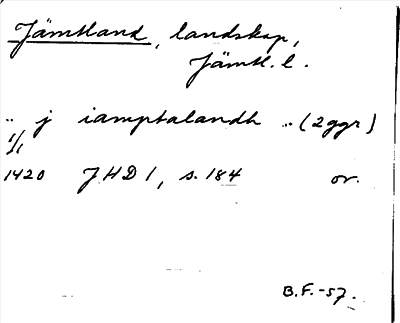 Jämtland, landskap,
Jämtl. l.
.. j iamptalandh .. (2ggr)
1/1
1420 JHD 1, s. 184 or.
B.F.-57.